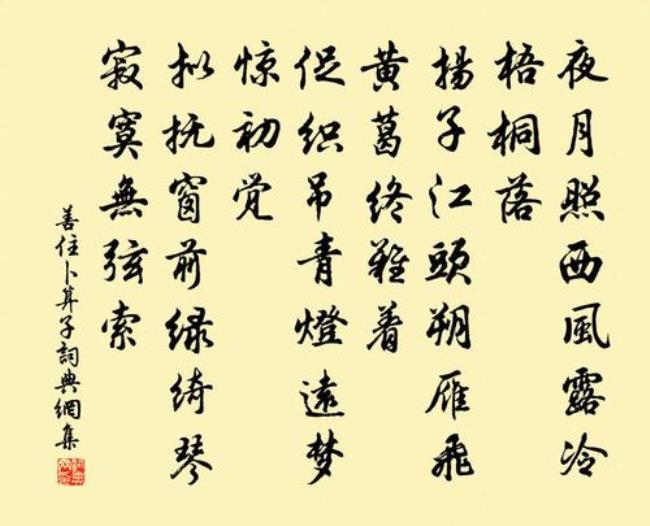 夜月照西風露冷
梧桐落
揚子江頭朔雁飛
黄葛终難着
促织吊青燈遠梦
惊初觉
拟抚窗前绿绮琴
寂寞無弦索
善住卜算子詞典網集